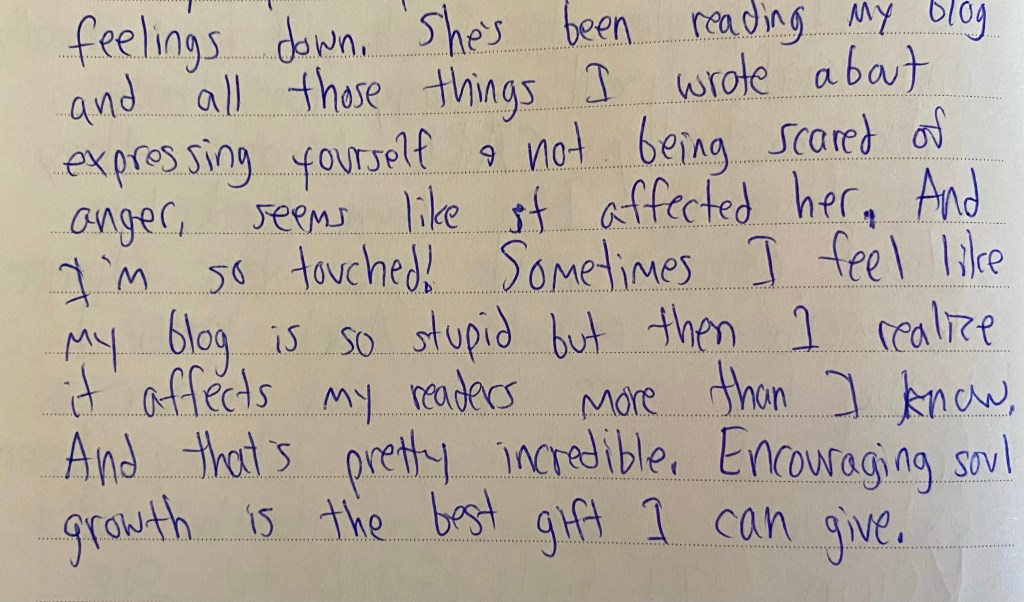 feelings down. She's been reading my blog
and all those things I wrote about
expressing yourself & not being scared of
anger, seems like it affected her. And
I'm so touched! Sometimes I feel like
my blog is so stupid but then I realize
it affects my readers more than I know.
And that's pretty incredible. Encouraging soul
growth is the best gift I can give.